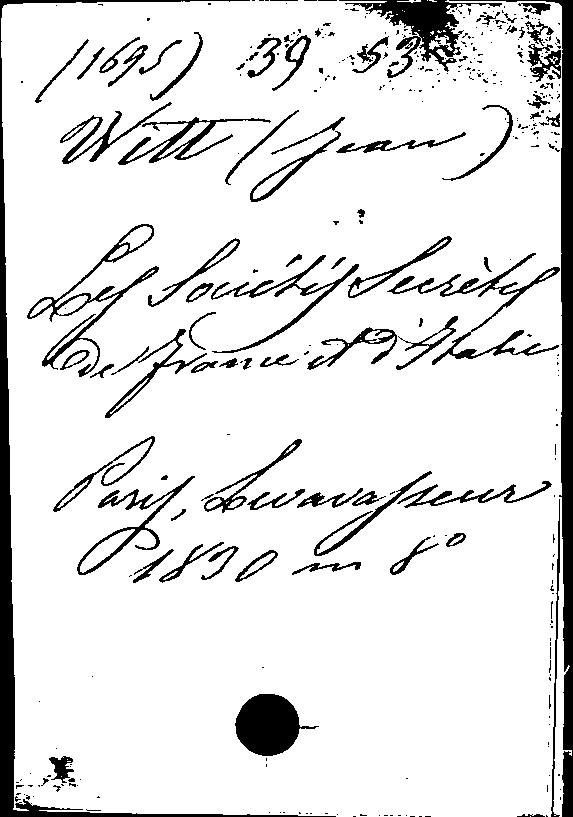 (1695) 39. 53
Witt (Jean)
Les Sociétés Secrètes
de France et d'Italie
Paris, Levavasseur
1830 in 8°